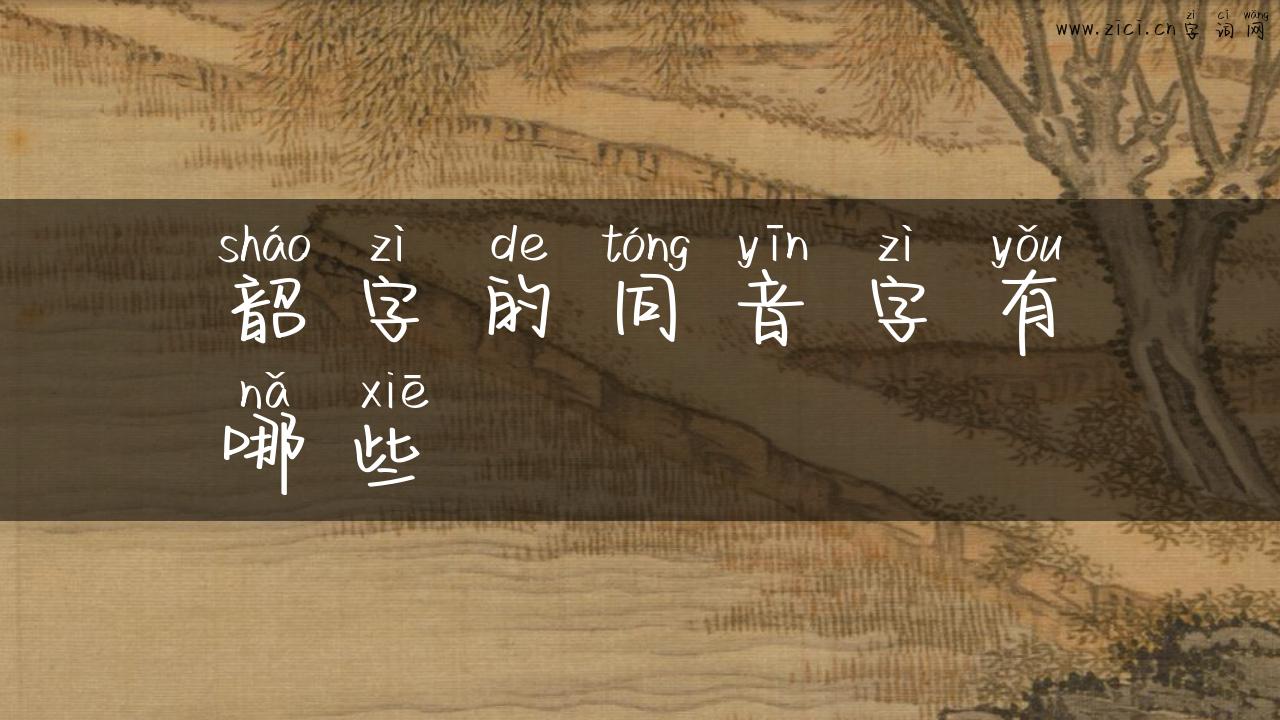 zì cí wǎng
www.zici.cn字词网
sháo zì de tóng yīn zì yǒu
韶字的同音字有
nǎ xiē
哪些